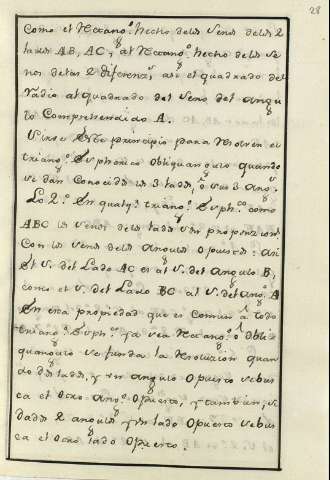 28
Como el Rectang.º hecho delos Senos delos 2
lados AB, AC, al Rectang.º hecho delos Se
nos delas 2 diferenz.s, asi el quadrado del
Radio al quadrado del Seno del angu
lo Comprehendido A.
Sirve este principio para resolver el
triang.º Espherico obliquangulo quando
se dan Conocidos 3 lados, ô sus 3 ang.s
Lo 2.º En qualq.r triang.º Esph.co como
ABC los Senos delos lados son proporcionl.s
Con los Senos delos angulos opuestos: asi
el S. del Lado AC es al S. del angulo B,
como el S. del Lado BC al S. del ang.º A
En esta propiedad que es Comun â todo
triang.º Esph.co ya sea Rectang.º ô obli
quangulo se funda la resoluzion quan
do dos lados, y un angulo opuesto se bus
ca el otro ang.º opuesto, y tambien, si
dados 2 angulos y un lado opuesto se bus
ca el otro lado opuesto.